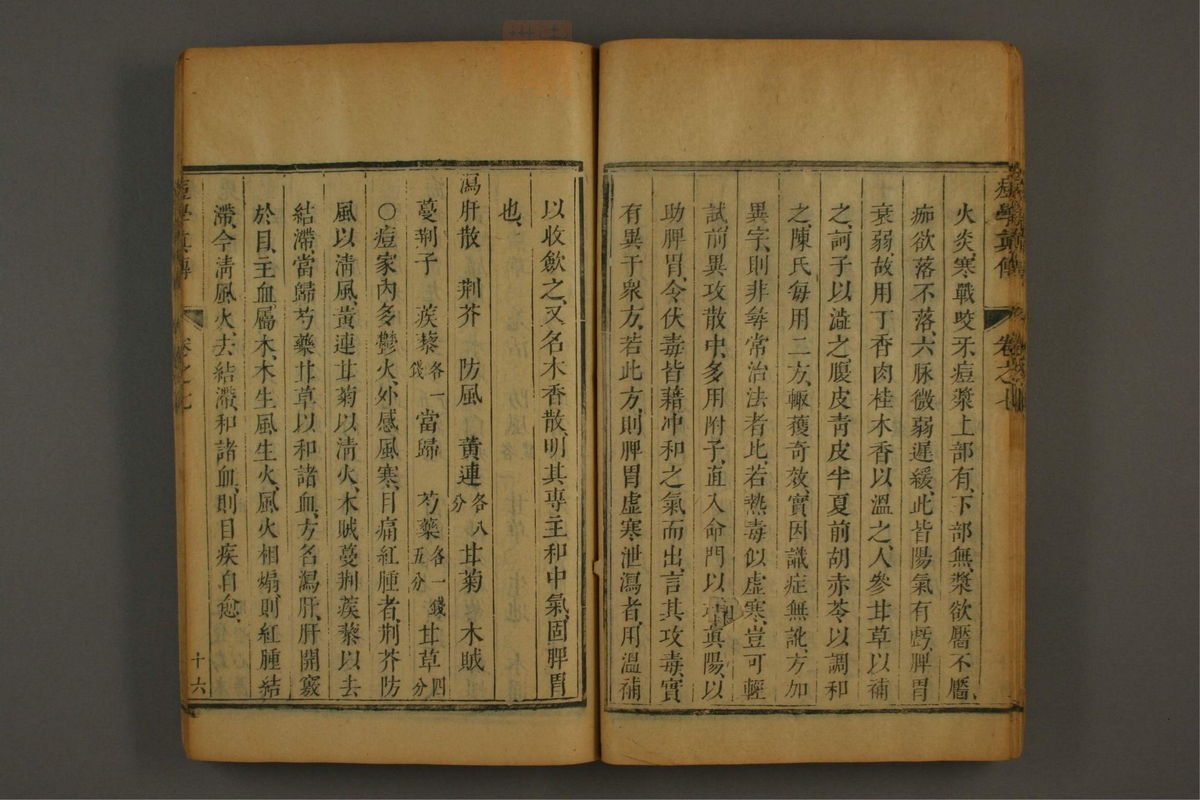 痘學真傳 卷之七
火炎寒戰咬牙痘漿上部有下部無漿欲靨不靨
痂欲落不落六脉微弱遲緩此皆陽氣有虧脾胃
衰弱故用丁香肉桂木香以溫之人參甘草以補
之訶子以澁之腹皮靑皮半夏前胡赤苓以調和
之陳氏每用二方輙獲奇效實因識症無訛方加
異字則非尋常治法者比若熱毒似虛寒豈可輕
試前異攻散中多用附子直入命門以真陽以
助脾胃令伏毒皆藉冲和之氣而出言其攻毒實
有異于衆方若此方則脾胃虛寒泄瀉者用溫補
以收斂之又名木香散明其專主和中氣固脾胃
也
瀉肝散 荆芥 防風 黃連各八分 甘菊 木賊
蔓荆子 蒺藜各一錢 當歸 芍藥各一錢五分 甘草四分
○痘家內多鬱火外感風寒目痛紅腫者荆芥防
風以清風黃連甘菊以清火木賊蔓荆蒺藜以去
結滯當歸芍藥甘草以和諸血方名瀉肝肝開竅
於目主血屬木木生風生火風火相煽則紅腫結
滯今淸風火去結滯和諸血則目疾自愈
痘學真傳 卷之七 十六